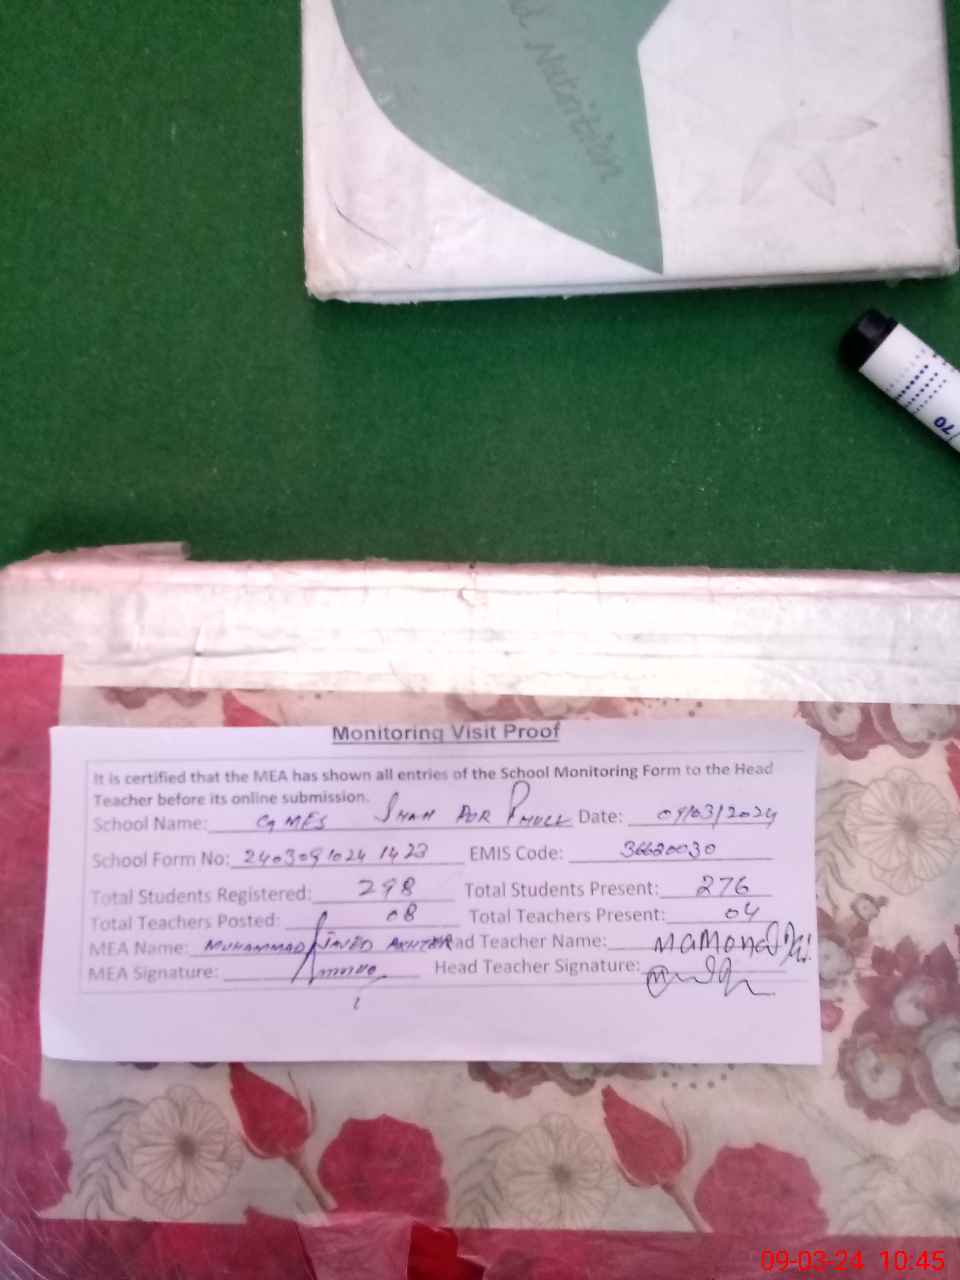 Nutrition
70
Monitoring Visit Proof
It is certified that the MEA has shown all entries of the School Monitoring Form to the Head
Teacher before its online submission.
School Name: GMES SHAH PUR PHULL Date: 09/03/2024
School Form No: 2403091024 1423 EMIS Code: 36620030
Total Students Registered: 298 Total Students Present: 276
Total Teachers Posted: 08 Total Teachers Present: 04
MEA Name: MUHAMMAD JAVED AKHTER ad Teacher Name:
MEA Signature: Head Teacher Signature:
09-03-24 10:45